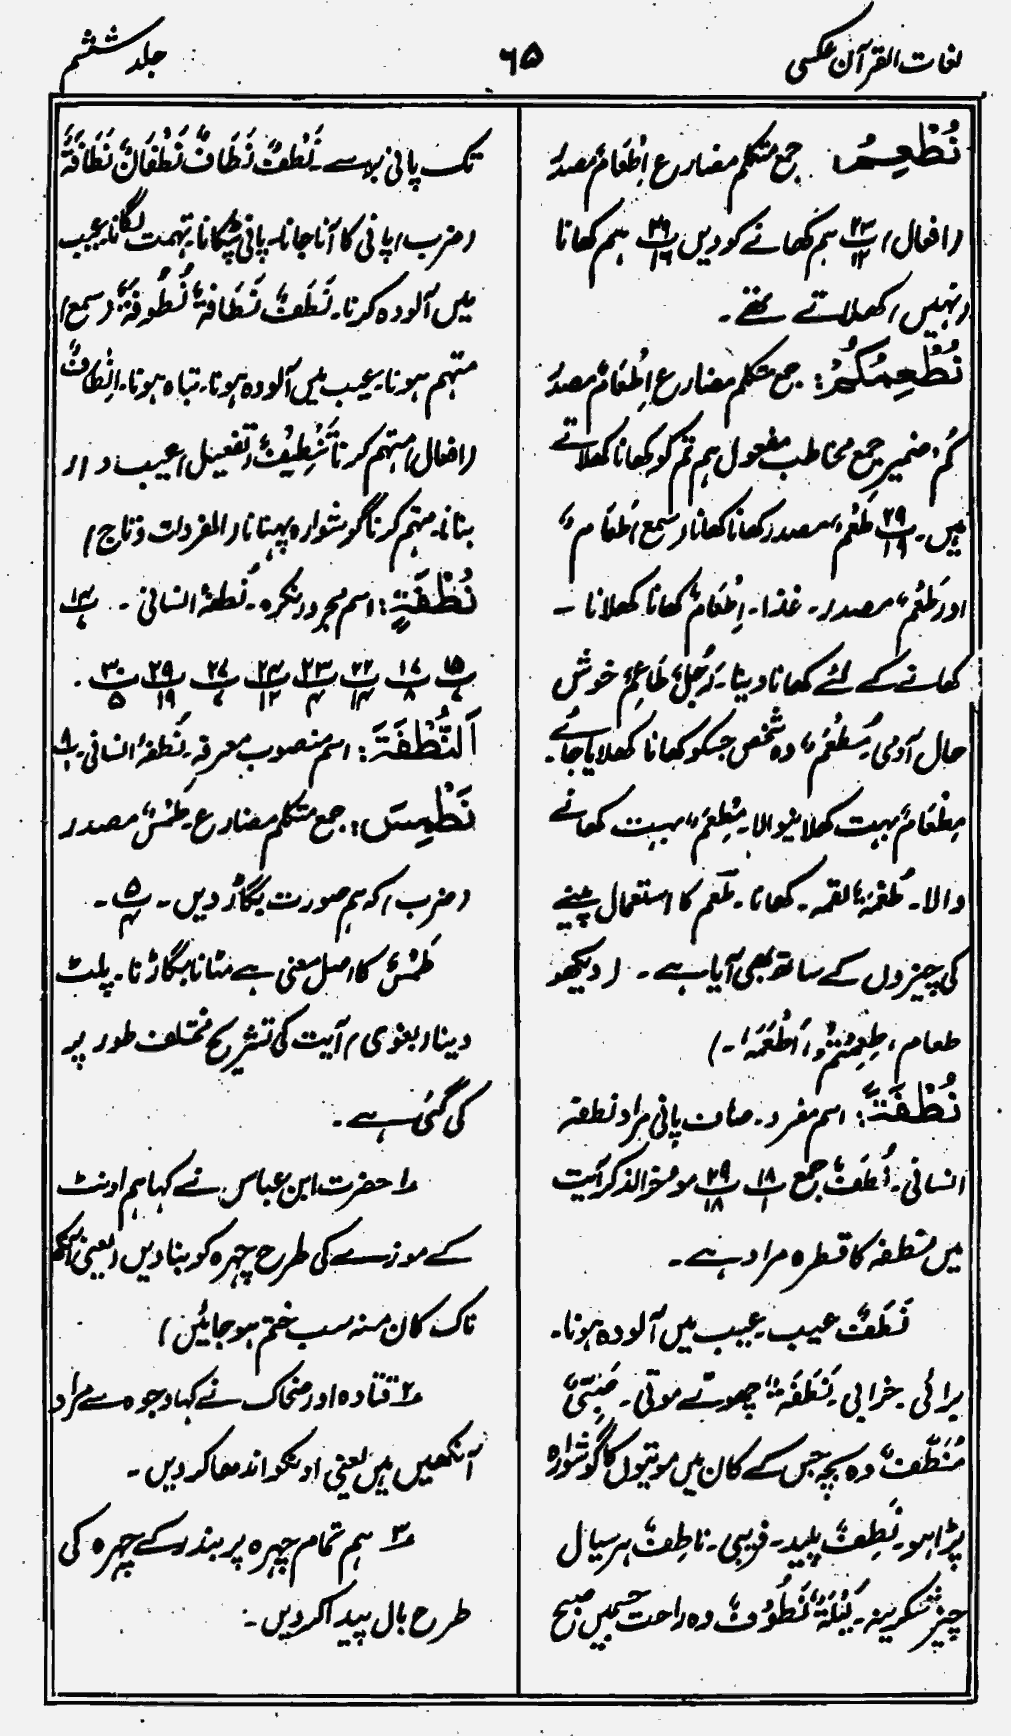 لغات القرآن عکسی
۶۵
جلد ششم
نُطْعِمُ جمع متکلم مضارع اِطْعَامٌ مصدر
(افعال) ۲۳/۱۲ ہم کھانے کو دیں ۲۹/۱۶ ہم کھانا
(نہیں) کھلاتے تھے۔
نُطْعِمُکُمْ: جمع متکلم مضارع اِطْعَامٌ مصدر
کُمْ ضمیر جمع مخاطب مفعول ہم تم کو کھانا کھلاتے
ہیں۔ ۲۹/۱۹ طَعْمٌ مصدر کھانا کھانا (سمع) طَعَامٌ
اور طَعْمٌ مصدر۔ غذا۔ اِطْعَامٌ کھانا کھلانا۔
کھانے کے لئے کھانا دینا۔ رَجُلٌ طَاعِمٌ خوش
حال آدمی مُسْطْعَمٌ وہ شخص جسکو کھانا کھلایا جائے۔
مِطْعَامٌ بہت کھلانیوالا۔ مِطْعَمٌ بہت کھانے
والا۔ طُعْمَۃٌ لقمہ۔ کھانا۔ طَعم کا استعمال پینے
کی چیزوں کے ساتھ بھی آیا ہے۔ (دیکھو
طعام، طَعِمْتُمْ، اَطْعَمَہٗ۔)
نُطْفَۃً: اسم مفرد۔ صاف پانی مراد نطفہ
انسانی۔ نُطَفٌ جمع ۱۸/۱ ۲۹/۱۸ موخر الذکر آیت
میں نطفہ کا قطرہ مراد ہے۔
نَطَفٌ عیب۔ عیب میں آلودہ ہونا۔
برائی۔ خرابی۔ نَطَفَۃٌ چھوٹے موتی۔ صَبِیٌّ
مُنَطَّفٌ وہ بچہ جس کے کان میں موتیوں کا گوشوارہ
پڑا ہو۔ نَطِفٌ پلید۔ فریبی۔ ناطِفٌ ہر سیال
چیز شکرینہ۔ لَیْلَۃٌ نَطُوْفٌ وہ رات جسمیں صبح
تک پانی برسے۔ نَطْفٌ نَطَافٌ نَطْفَانٌ نَطَافَۃٌ
(ضرب) پانی کا آنا جانا۔ پانی ٹپکانا۔ تہمت لگانا۔ عیب
میں آلودہ کرنا۔ نَطَفٌ نَطَافَۃٌ نُطُوفَۃٌ (سمع)
متہم ہونا۔ عیب میں آلودہ ہونا۔ تباہ ہونا۔ اِنْطَافٌ
(افعال) متہم کرنا تَنْطِیْفٌ (تفعیل) عیب دار
بنانا۔ متہم کرنا گوشوارہ پہنانا (المفردات و تاج)
نُطْفَۃٍ: اسم مجرور نکرہ۔ نُطفۂ انسانی۔ ۱۴/۷
۱۵/۷ ۱۷/۸ ۲۲/۱۴ ۲۳/۴ ۲۴/۱۲ ۲۷/۷ ۲۹/۱۹ ۳۰/۵۔
اَلنُّطْفَۃَ: اسم منصوب معرفہ۔ نُطفۂ انسانی۔ ۱۸/۱
نَطْمِسَ: جمع متکلم مضارع۔ طَمْسٌ مصدر
(ضرب) کہ ہم صورت بگاڑ دیں۔ ۵/۴۔
طَمْسٌ کا اصل معنی ہے مٹانا بگاڑنا۔ پلٹ
دینا (بغوی) آیت کی تشریح مختلف طور پر
کی گئی ہے۔
۱؎ حضرت ابن عباس نے کہا ہم اونٹ
کے موزے کی طرح چہرہ کو بنا دیں (یعنی آنکھ
ناک کان منہ سب ختم ہو جائیں)
۲؎ قتادہ اور ضحاک نے کہا وجوہ سے مراد
آنکھیں ہیں یعنی اونکو اندھا کر دیں۔
۳؎ ہم تمام چہرہ پر بندر کے چہرہ کی
طرح بال پیدا کر دیں۔